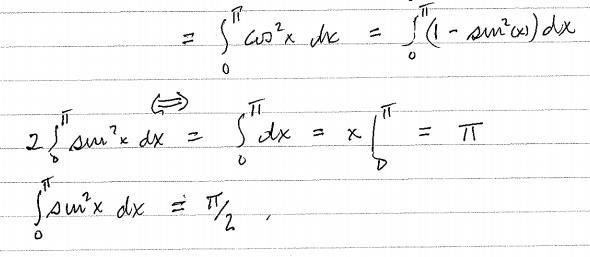 = ∫₀^π cos²x dx = ∫₀^π (1 - sin²(x)) dx
⟺
2 ∫₀^π sin²x dx = ∫₀^π dx = x |₀^π = π
∫₀^π sin²x dx = π/2 .